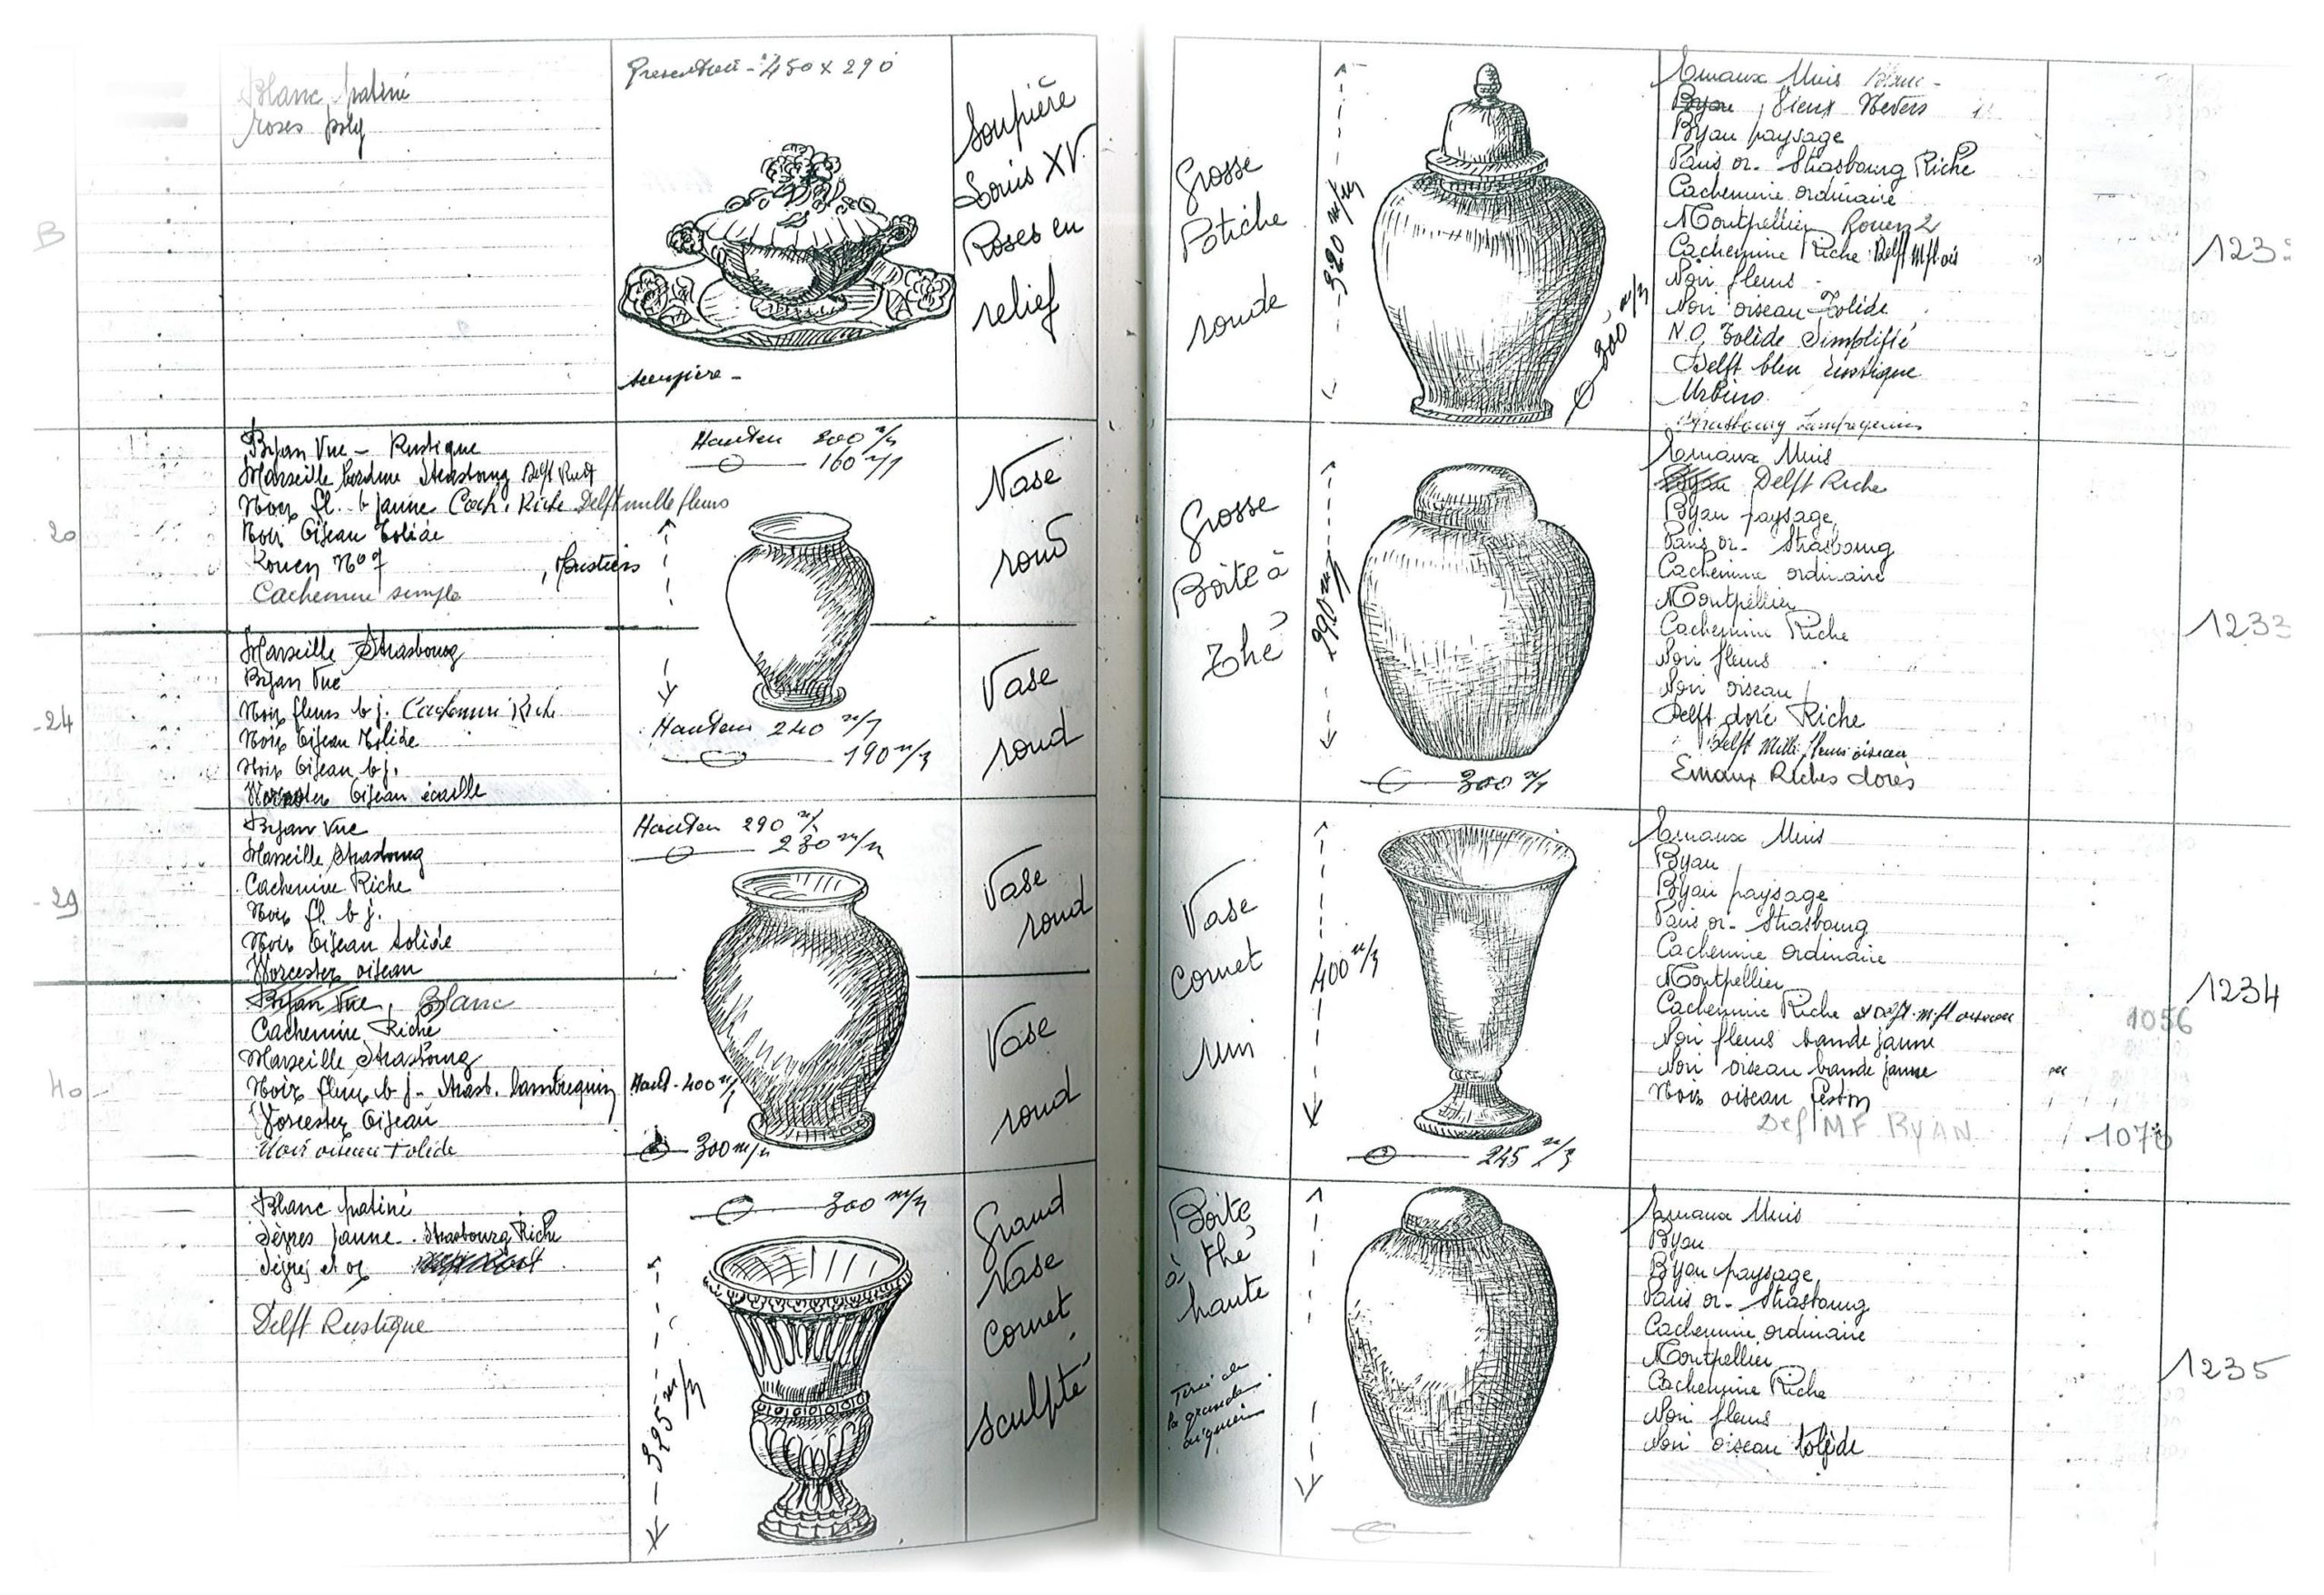 Blanc patiné
roses poly
450 x 290
Soupière
Louis XV
Roses en
relief
soupière -
B
Byan Vue - Rustique
Marseille bordure Strasbourg Delft Rust
Noir fl. b jaune Cach. Riche Delft mille fleurs
Noir Oiseau Tolède
Rouen No 7 , Moustiers
Cachemire simple
20
Hauteur 200 m/m
160 m/m
Vase
rond
Marseille Strasbourg
Byan Vue
Noir fleurs b j. Cachemire Riche
Noir Oiseau Tolède
Noir Oiseau b j.
Worcester Oiseau écaille
- 24
Hauteur 240 m/m
190 m/m
Vase
rond
Byan Vue
Marseille Strasbourg
Cachemire Riche
Noir fl. b j.
Noir Oiseau tolède
Worcester oiseau
- 29
Hauteur 290 m/m
230 m/m
Vase
rond
Byan Vue, Blanc
Cachemire Riche
Marseille Strasbourg
Noir fleurs b j - Strasb. lambrequin
Worcester Oiseau
Noir oiseau tolède
40
Haut - 400 m/m
300 m/m
Vase
rond
Blanc patiné
Sèvres jaune - Strasbourg Riche
Sèvres et or
Delft Rustique
300 m/m
325 m/m
Grand
Vase
Cornet
sculpté
Grosse
Potiche
ronde
520 m/m
300 m/m
Emaux Unis Blanc -
Byan , Vieux Nevers
Byan paysage
Paris or - Strasbourg Riche
Cachemire ordinaire
Montpellier Rouen 2
Cachemire Riche Delft M fl ois
Noir fleurs
Noir oiseau Tolède
N.O. Tolède Simplifié
Delft bleu rustique
Urbino
Strasbourg Lambrequins
123
Grosse
Boite à
Thé
290 m/m
300 m/m
Emaux Unis
Byan Delft Riche
Byan paysage
Paris or - Strasbourg
Cachemire ordinaire
Montpellier
Cachemire Riche
Noir fleurs
Noir oiseau
Delft doré Riche
Delft Mille fleurs oiseau
Emaux Riches dorés
1233
Vase
Cornet
uni
400 m/m
245 m/m
Emaux Unis
Byan
Byan paysage
Paris or - Strasbourg
Cachemire ordinaire
Montpellier
Cachemire Riche et Delft m fl oiseau
Noir fleurs bande jaune
Noir oiseau bande jaune
Noir oiseau feston
Delf MF BYAN
1234
1056
Boite
à thé
haute
la grande
Emaux Unis
Byan
Byan paysage
Paris or - Strasbourg
Cachemire ordinaire
Montpellier
Cachemire Riche
Noir fleurs
Noir oiseau tolède
1235